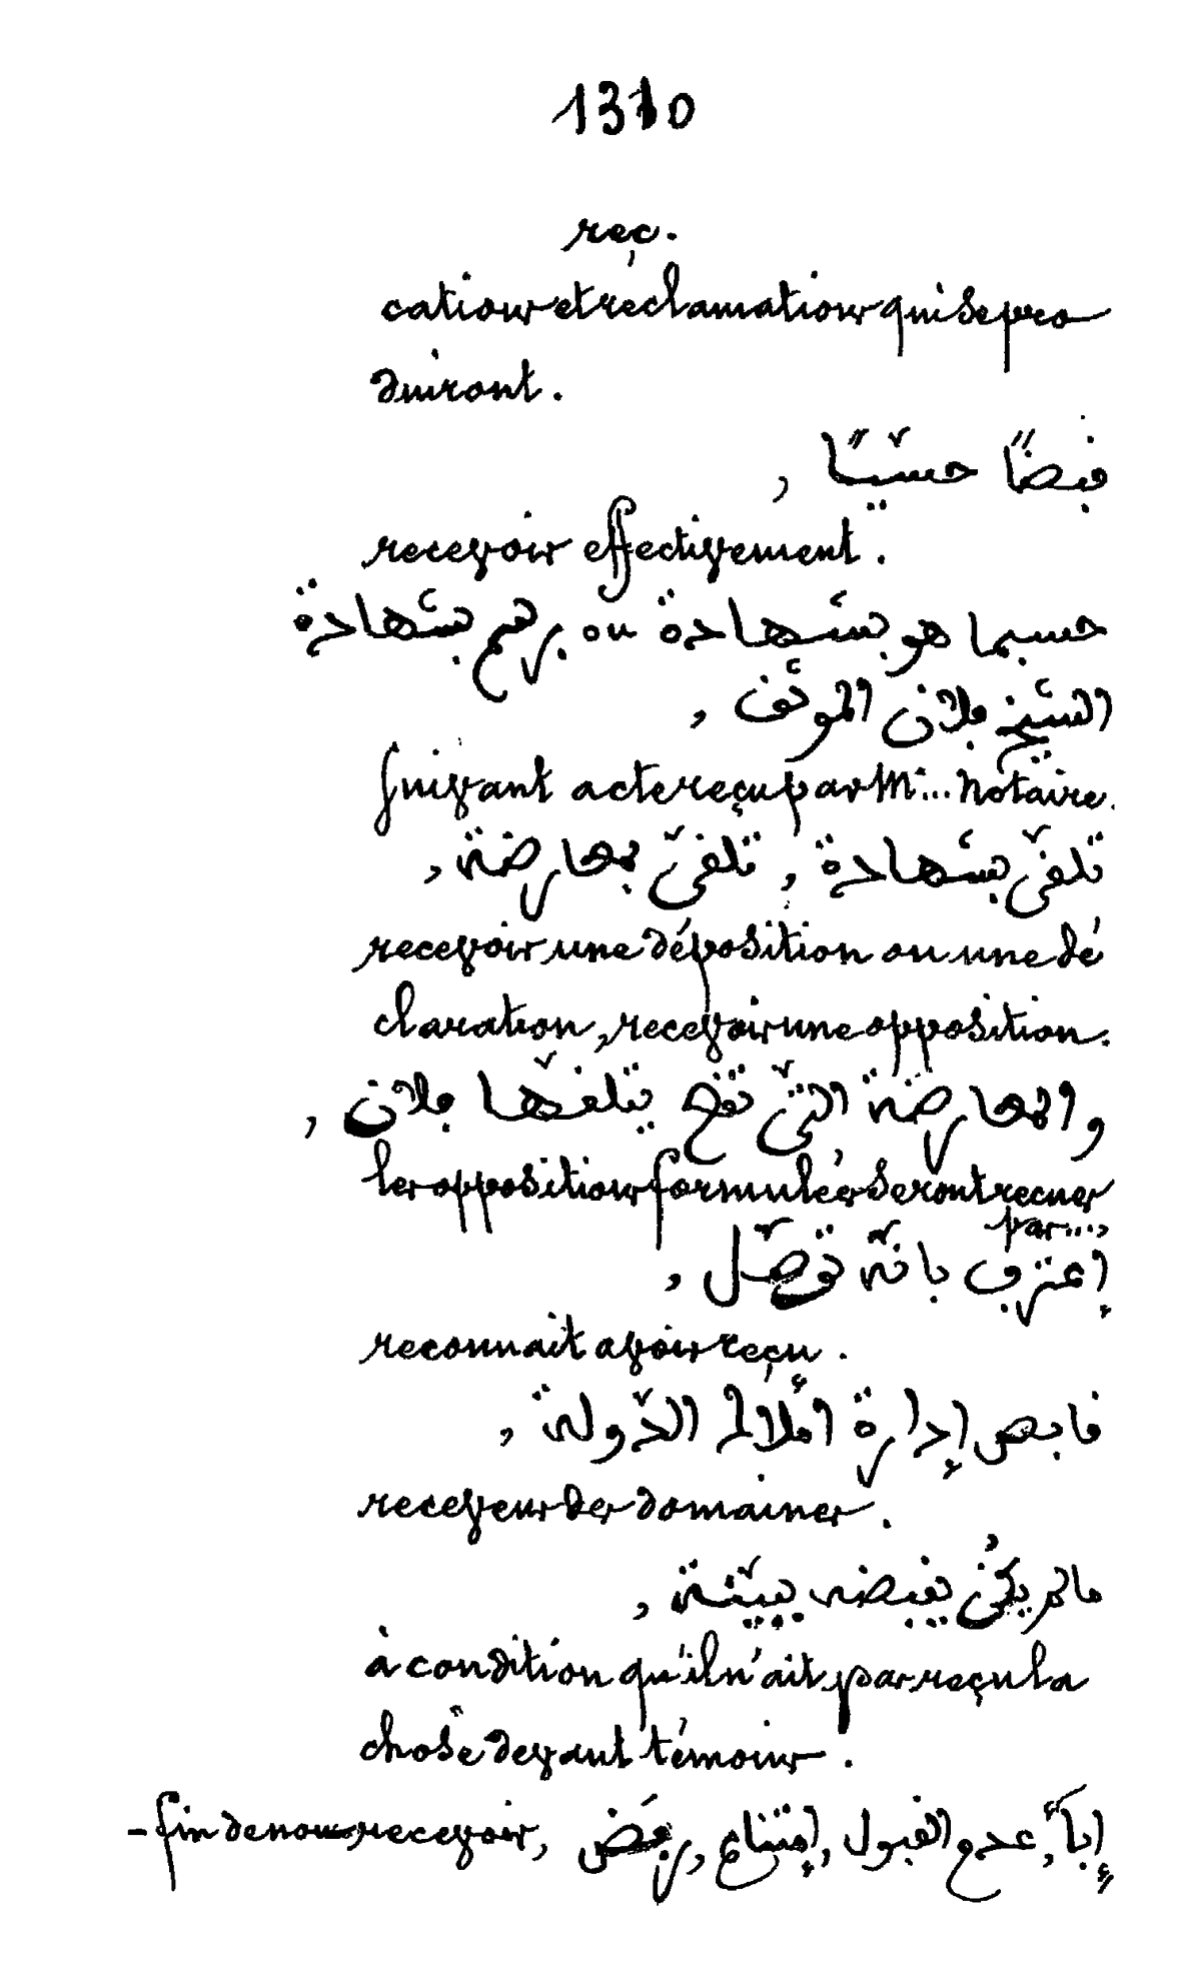 1310
reç.
cations et réclamations qui se pro
duiront.
قبضًا حسّيًا ,
recevoir effectivement.
حسبما هو بشهادة ou برسم بشهادة
الشيخ فلان الموثق ,
suivant acte reçu par Mᵉ... notaire.
تلقّى بشهادة , تلقّى بمعارضة ,
recevoir une déposition ou une dé
claration, recevoir une opposition.
والمعارضة التّي تقع يتلقّها فلان ,
les oppositions formulées seront reçues
par....,
إعترف بانّه توصّل ,
reconnait avoir reçu.
قابض إدارة املاك الدّولة ,
receveur des domaines.
مالم يكُن يقبضه ببيّنة ,
à condition qu'il n'ait pas reçu la
chose devant témoins.
- fin de non recevoir, إباءً, عدم القبول, إمتناع, رفض